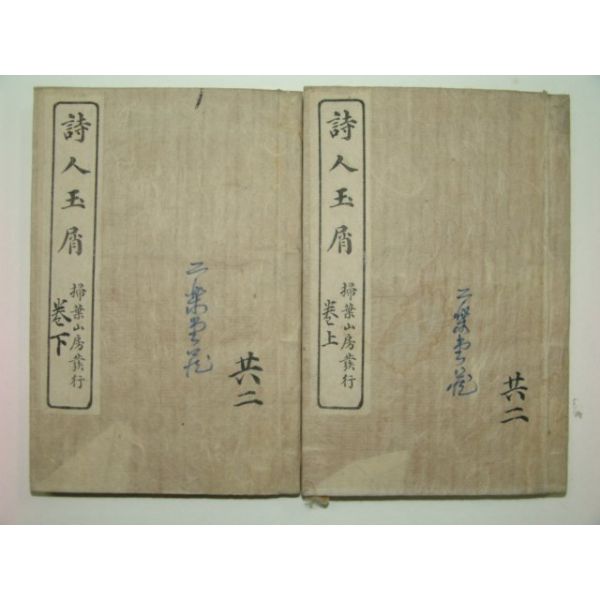 詩人玉屑
掃葉山房發行
卷下
二樂堂藏
共二
詩人玉屑
掃葉山房發行
卷上
二樂堂藏
共二